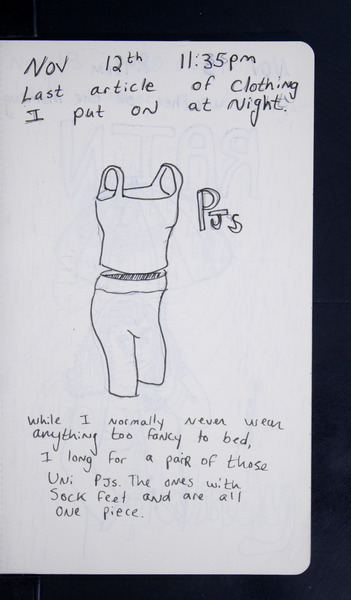 Nov 12th 11:35pm
Last article of clothing
I put on at night.
PJs
While I normally never wear
anything too fancy to bed,
I long for a pair of those
Uni PJs. The ones with
Sock feet and are all
one piece.